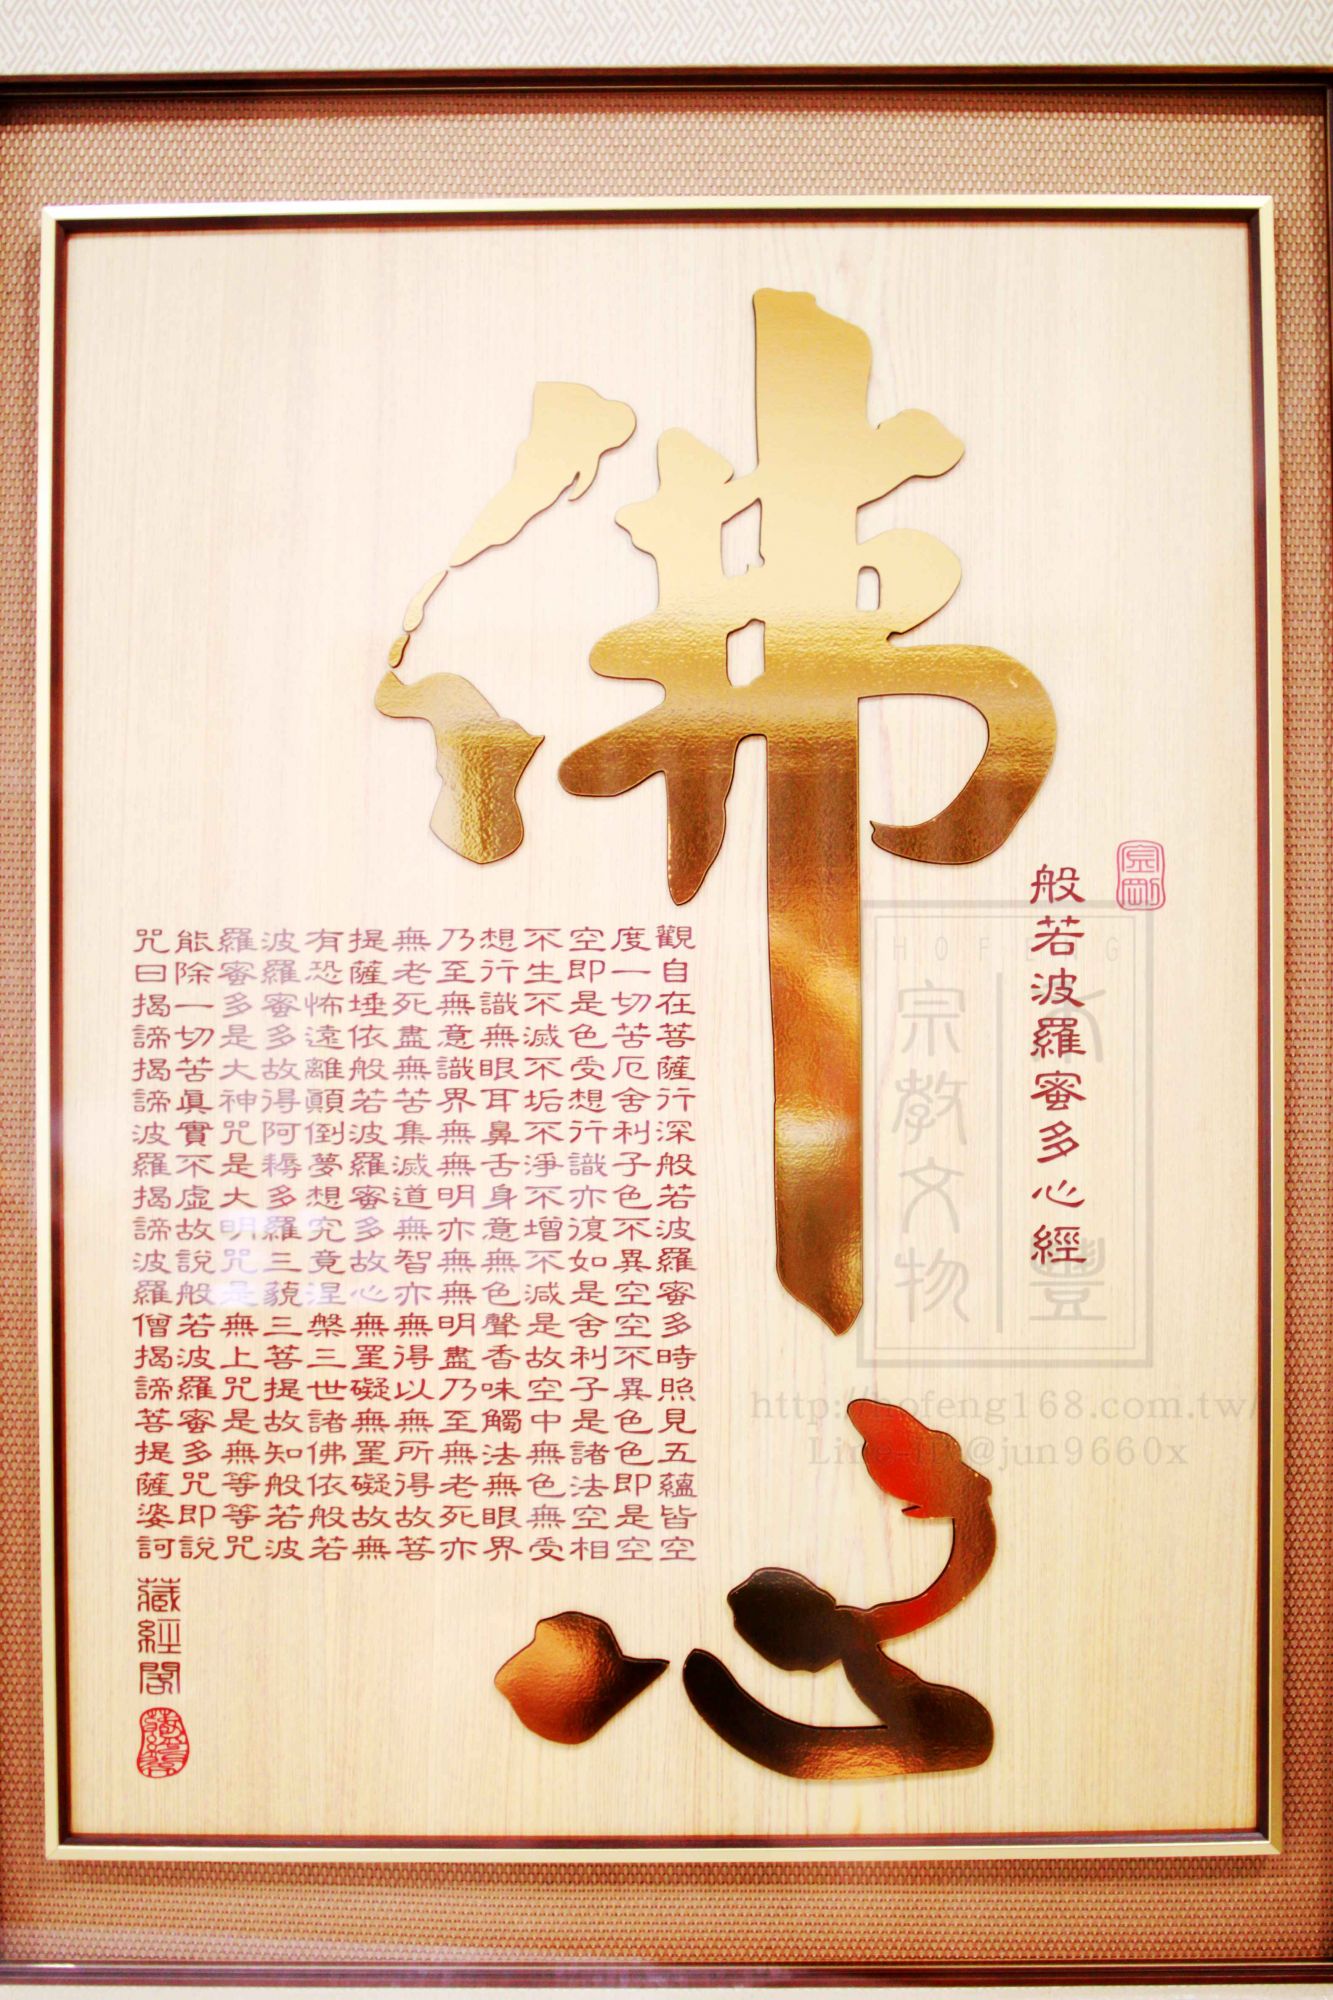 佛心
般若波羅蜜多心經
觀自在菩薩行深般若波羅蜜多時照見五蘊皆空
度一切苦厄舍利子色不異空空不異色色即是空
空即是色受想行識亦復如是舍利子是諸法空相
不生不滅不垢不淨不增不減是故空中無色無受
想行識無眼耳鼻舌身意無色聲香味觸法無眼界
乃至無意識界無無明亦無無明盡乃至無老死亦
無老死盡無苦集滅道無智亦無得以無所得故菩
提薩埵依般若波羅蜜多故心無罣礙無罣礙故無
有恐怖遠離顛倒夢想究竟涅槃三世諸佛依般若
波羅蜜多故得阿耨多羅三藐三菩提故知般若波
羅蜜多是大神咒是大明咒是無上咒是無等等咒
能除一切苦真實不虛故說般若波羅蜜多咒即說
咒曰揭諦揭諦波羅揭諦波羅僧揭諦菩提薩婆訶
藏經閣
HOFENG
禾豐
宗教文物
http://hofeng168.com.tw/
Line-ID@jun9660x